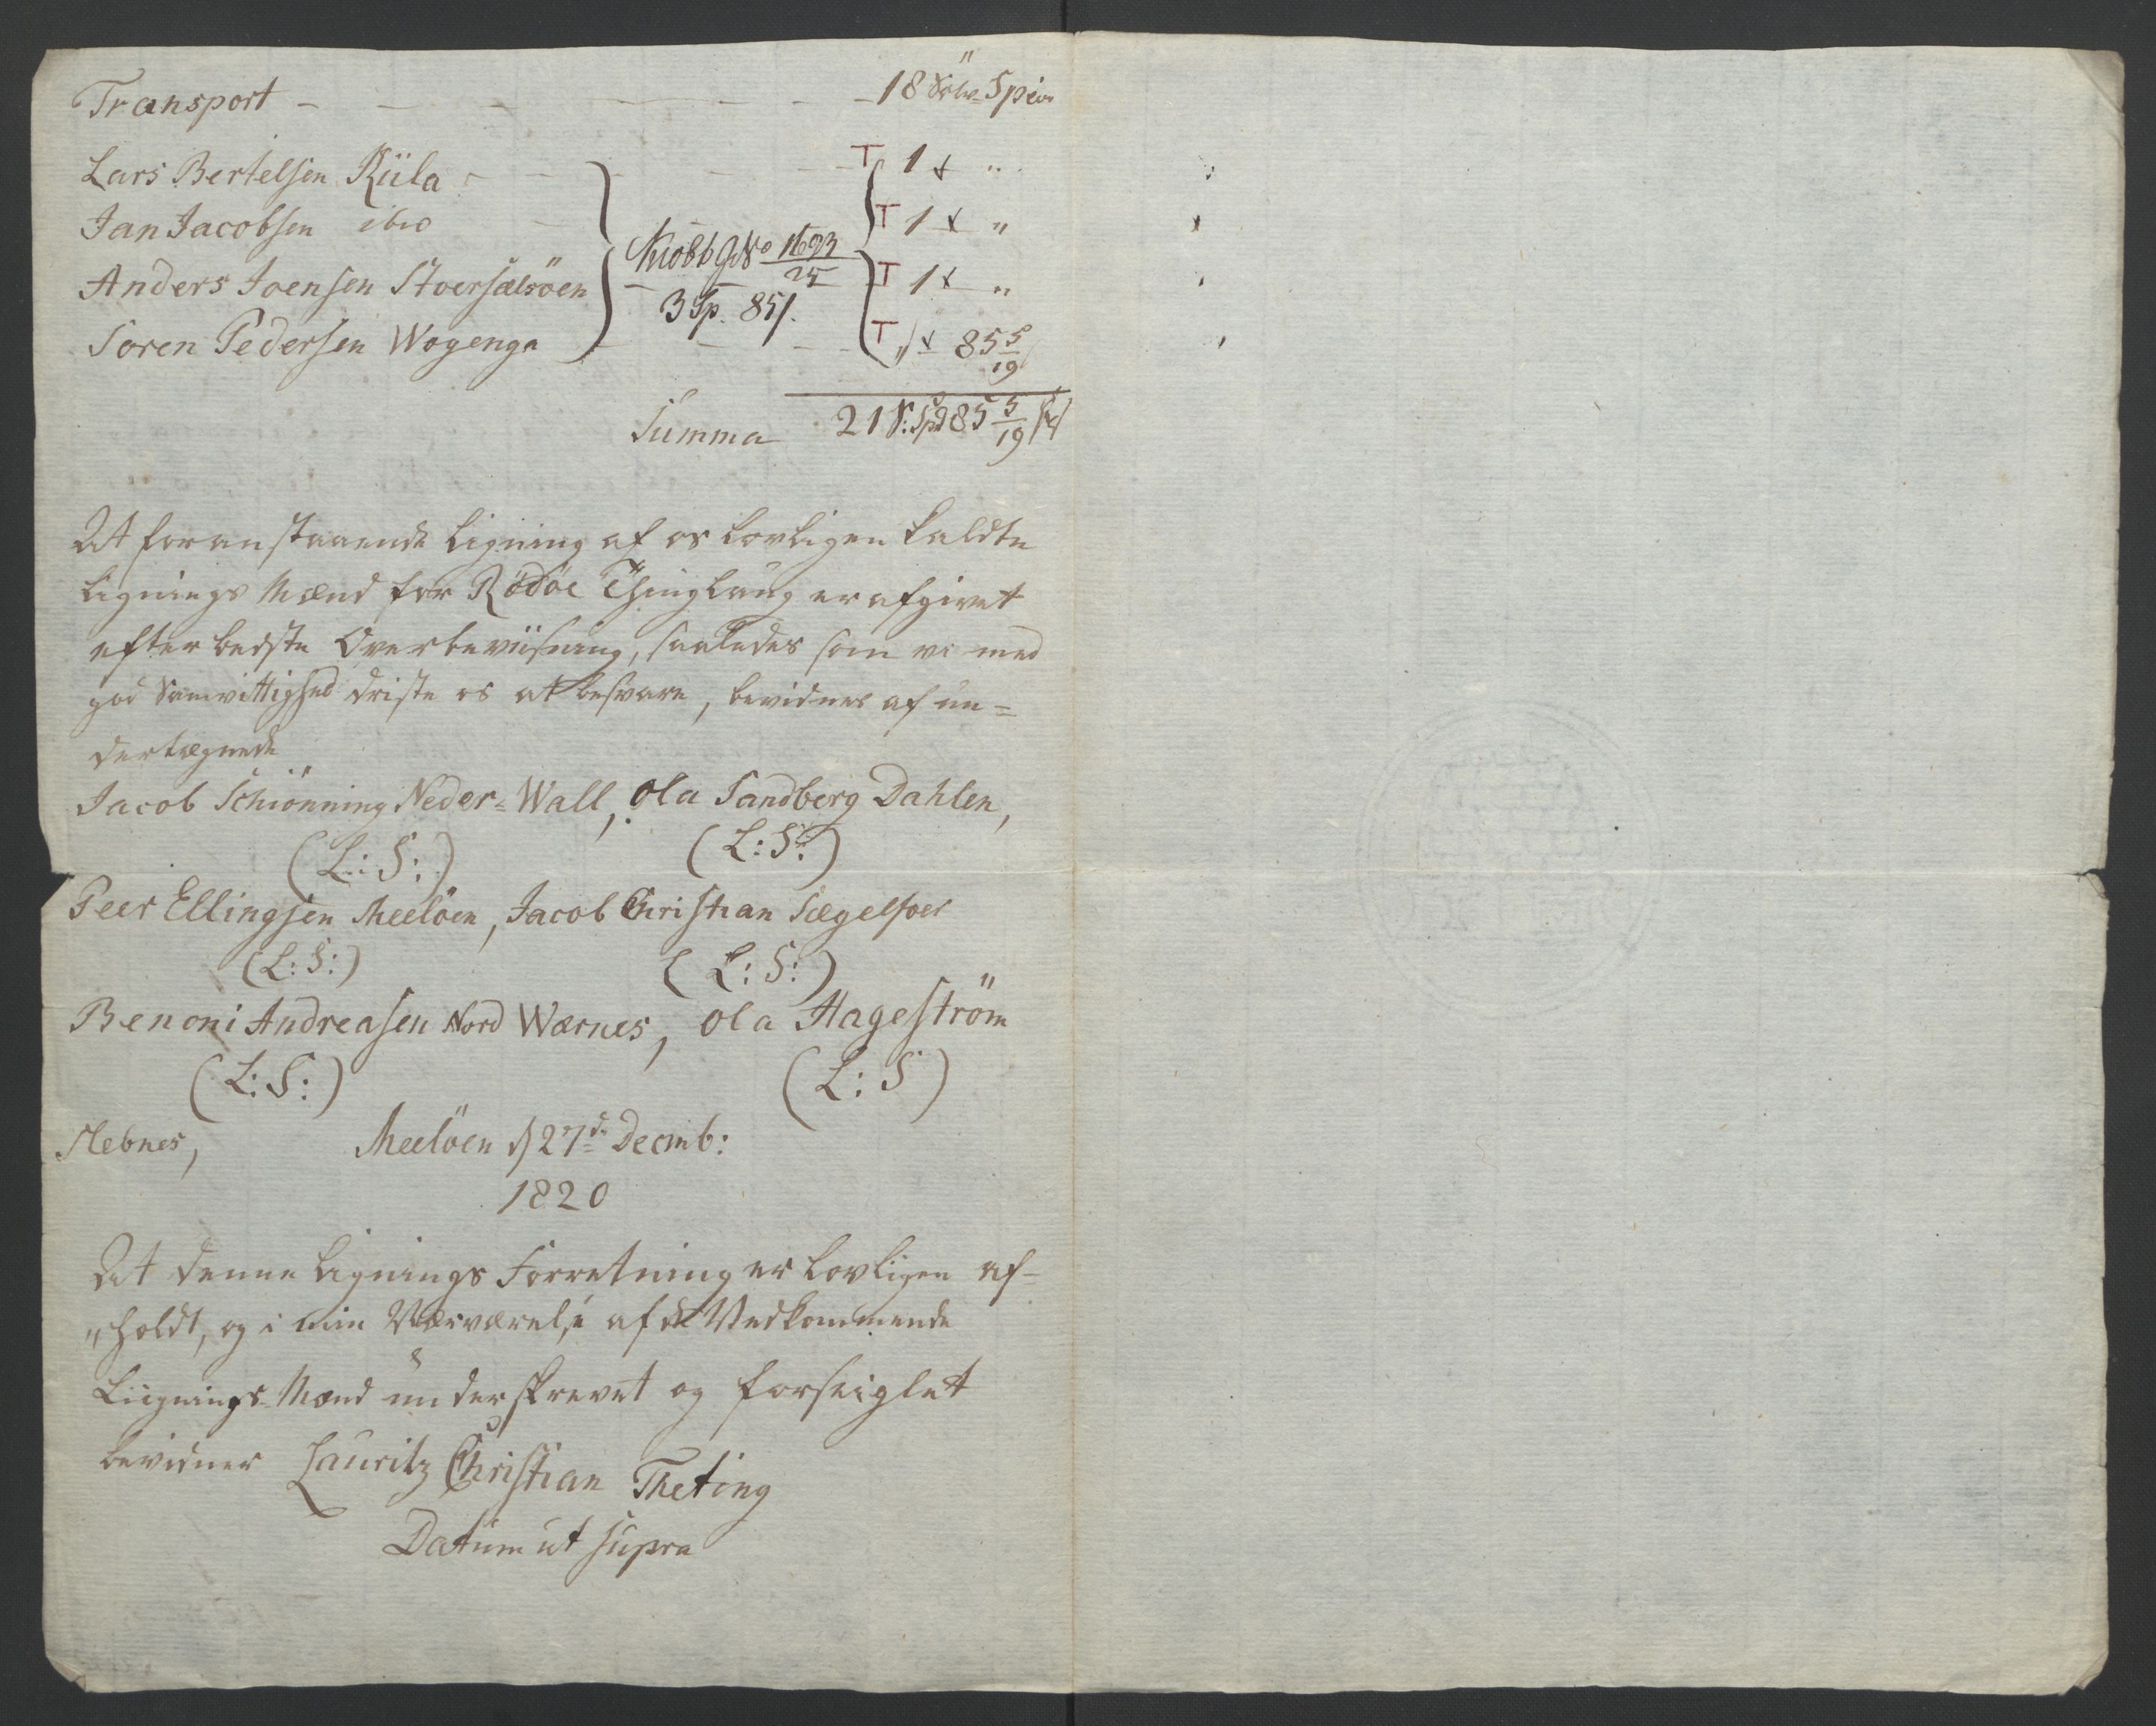 Transport - - - - - - - 18 Sølv Specie
Lars Bertelsen Riila - - - - - T 1 " 
Jan Jacobsen ibid - T 1 "
Anders Joensen Stoersælsöen - - T 1 "
Soren Pedersen Wogenga - - - T " 85 5/19
No 1693/25
3 Sp. 85 s.
Summa 21 S: Spd 85 5/19 s
At foranstaaende Ligning af os lovligen kaldte
Lignings Mænd for Rödöe Thinglaug er afgivet
efter bedste Overbeviisning, saaledes som vi med
god Samvittighed driste os at besvare, bevidner af un=
dertegnede
Jacob Schiönning Neder=Wall, Ola Sandberg Dahlen,
(L:S:) (L:S:)
Peer Ellingsen Meelöen, Jacob Christian Sægelfoer
(L:S:) (L:S:)
Benoni Andreasen Nord Wærnes, Ola Hageström
(L:S:) (L:S)
Stebnes, Meelöen d 27de Decmb:
1820
At denne Lignings Forretning er lovligen af=
"holdt, og i min Nærværelse af de Vedkommende
Liignings-Mænd underskrevet og forseiglet
bevidner Lauritz Christian Theting
Datum ut supra